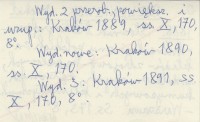 Wyd. 2 przerob., powiększ. i
uzup.: Kraków 1889, ss X, 170,
8°.
Wyd. nowe: Kraków 1890,
ss. X, 170.
Wyd. 3: Kraków 1891, ss
X, 170, 8°.